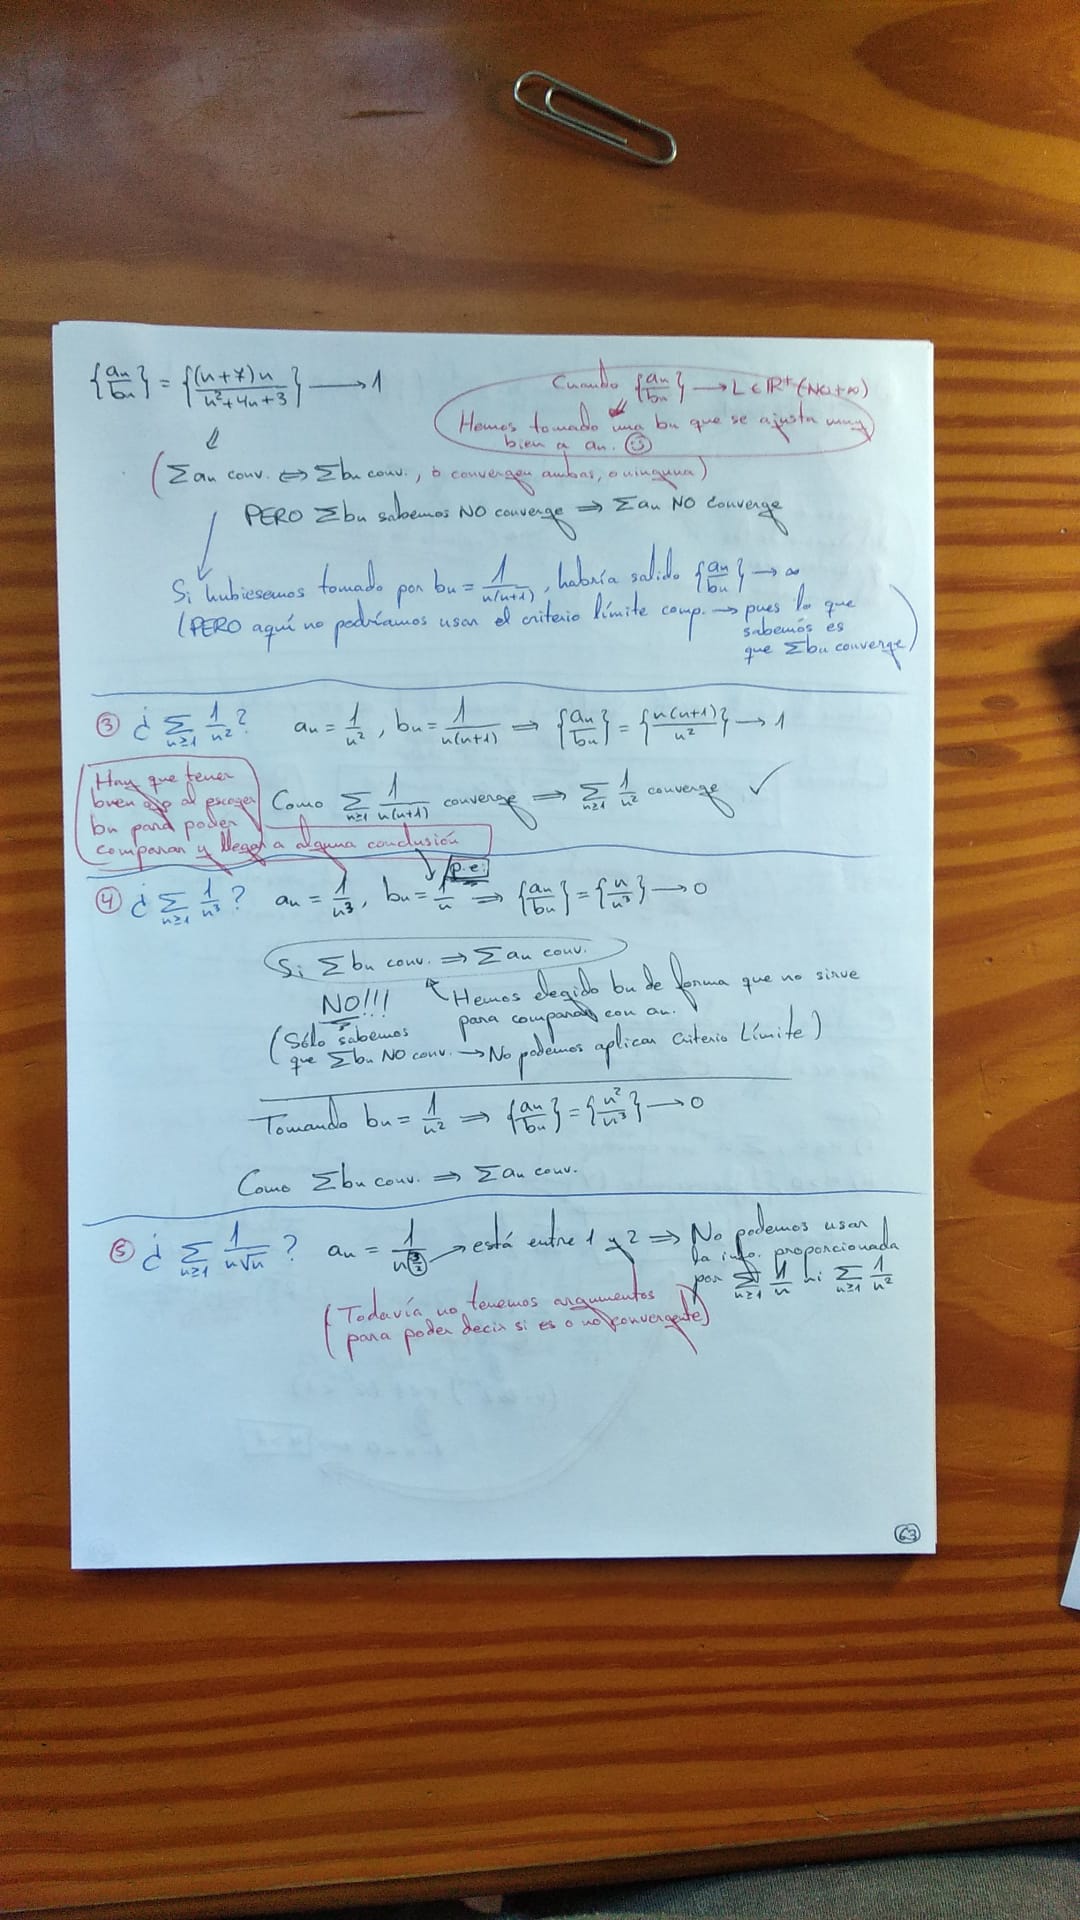 {an/bn} = {(n+7)n / n²+4n+3} → 1
Cuando {an/bn} → L ∈ ℝ⁺ (No +∞)
Hemos tomado una bn que se ajusta muy
bien a an. ☺
(Σan conv. ⇔ Σbn conv., o convergen ambas, o ninguna)
PERO Σbn sabemos NO converge ⇒ Σan NO converge
Si hubiesemos tomado por bn = 1/n(n+1), habría salido {an/bn} → ∞
(PERO aquí no podríamos usar el criterio límite comp. → pues lo que
sabemos es
que Σbn converge)
③ ¿ Σ n≥1 1/n² ? an = 1/n², bn = 1/n(n+1) ⇒ {an/bn} = {n(n+1)/n²} → 1
Como Σ n≥1 1/n(n+1) converge ⇒ Σ n≥1 1/n² converge ✓
Hay que tener
buen ojo al escoger
bn para poder
comparar y llegar a alguna conclusión
p.e:
④ ¿ Σ n≥1 1/n³ ? an = 1/n³, bn = 1/n ⇒ {an/bn} = {n/n³} → 0
Si Σbn conv. ⇒ Σan conv.
NO!!!
Hemos elegido bn de forma que no sirve
para comparar con an.
(Sólo sabemos
que Σbn NO conv. → No podemos aplicar Criterio Límite)
Tomando bn = 1/n² ⇒ {an/bn} = {n²/n³} → 0
Como Σbn conv. ⇒ Σan conv.
⑤ ¿ Σ n≥1 1/n√n ? an = 1/n^(3/2) → está entre 1 y 2 ⇒ No podemos usar
la info. proporcionada
por Σ n≥1 1/n ni Σ n≥1 1/n²
(Todavía no tenemos argumentos
para poder decir si es o no convergente)
63